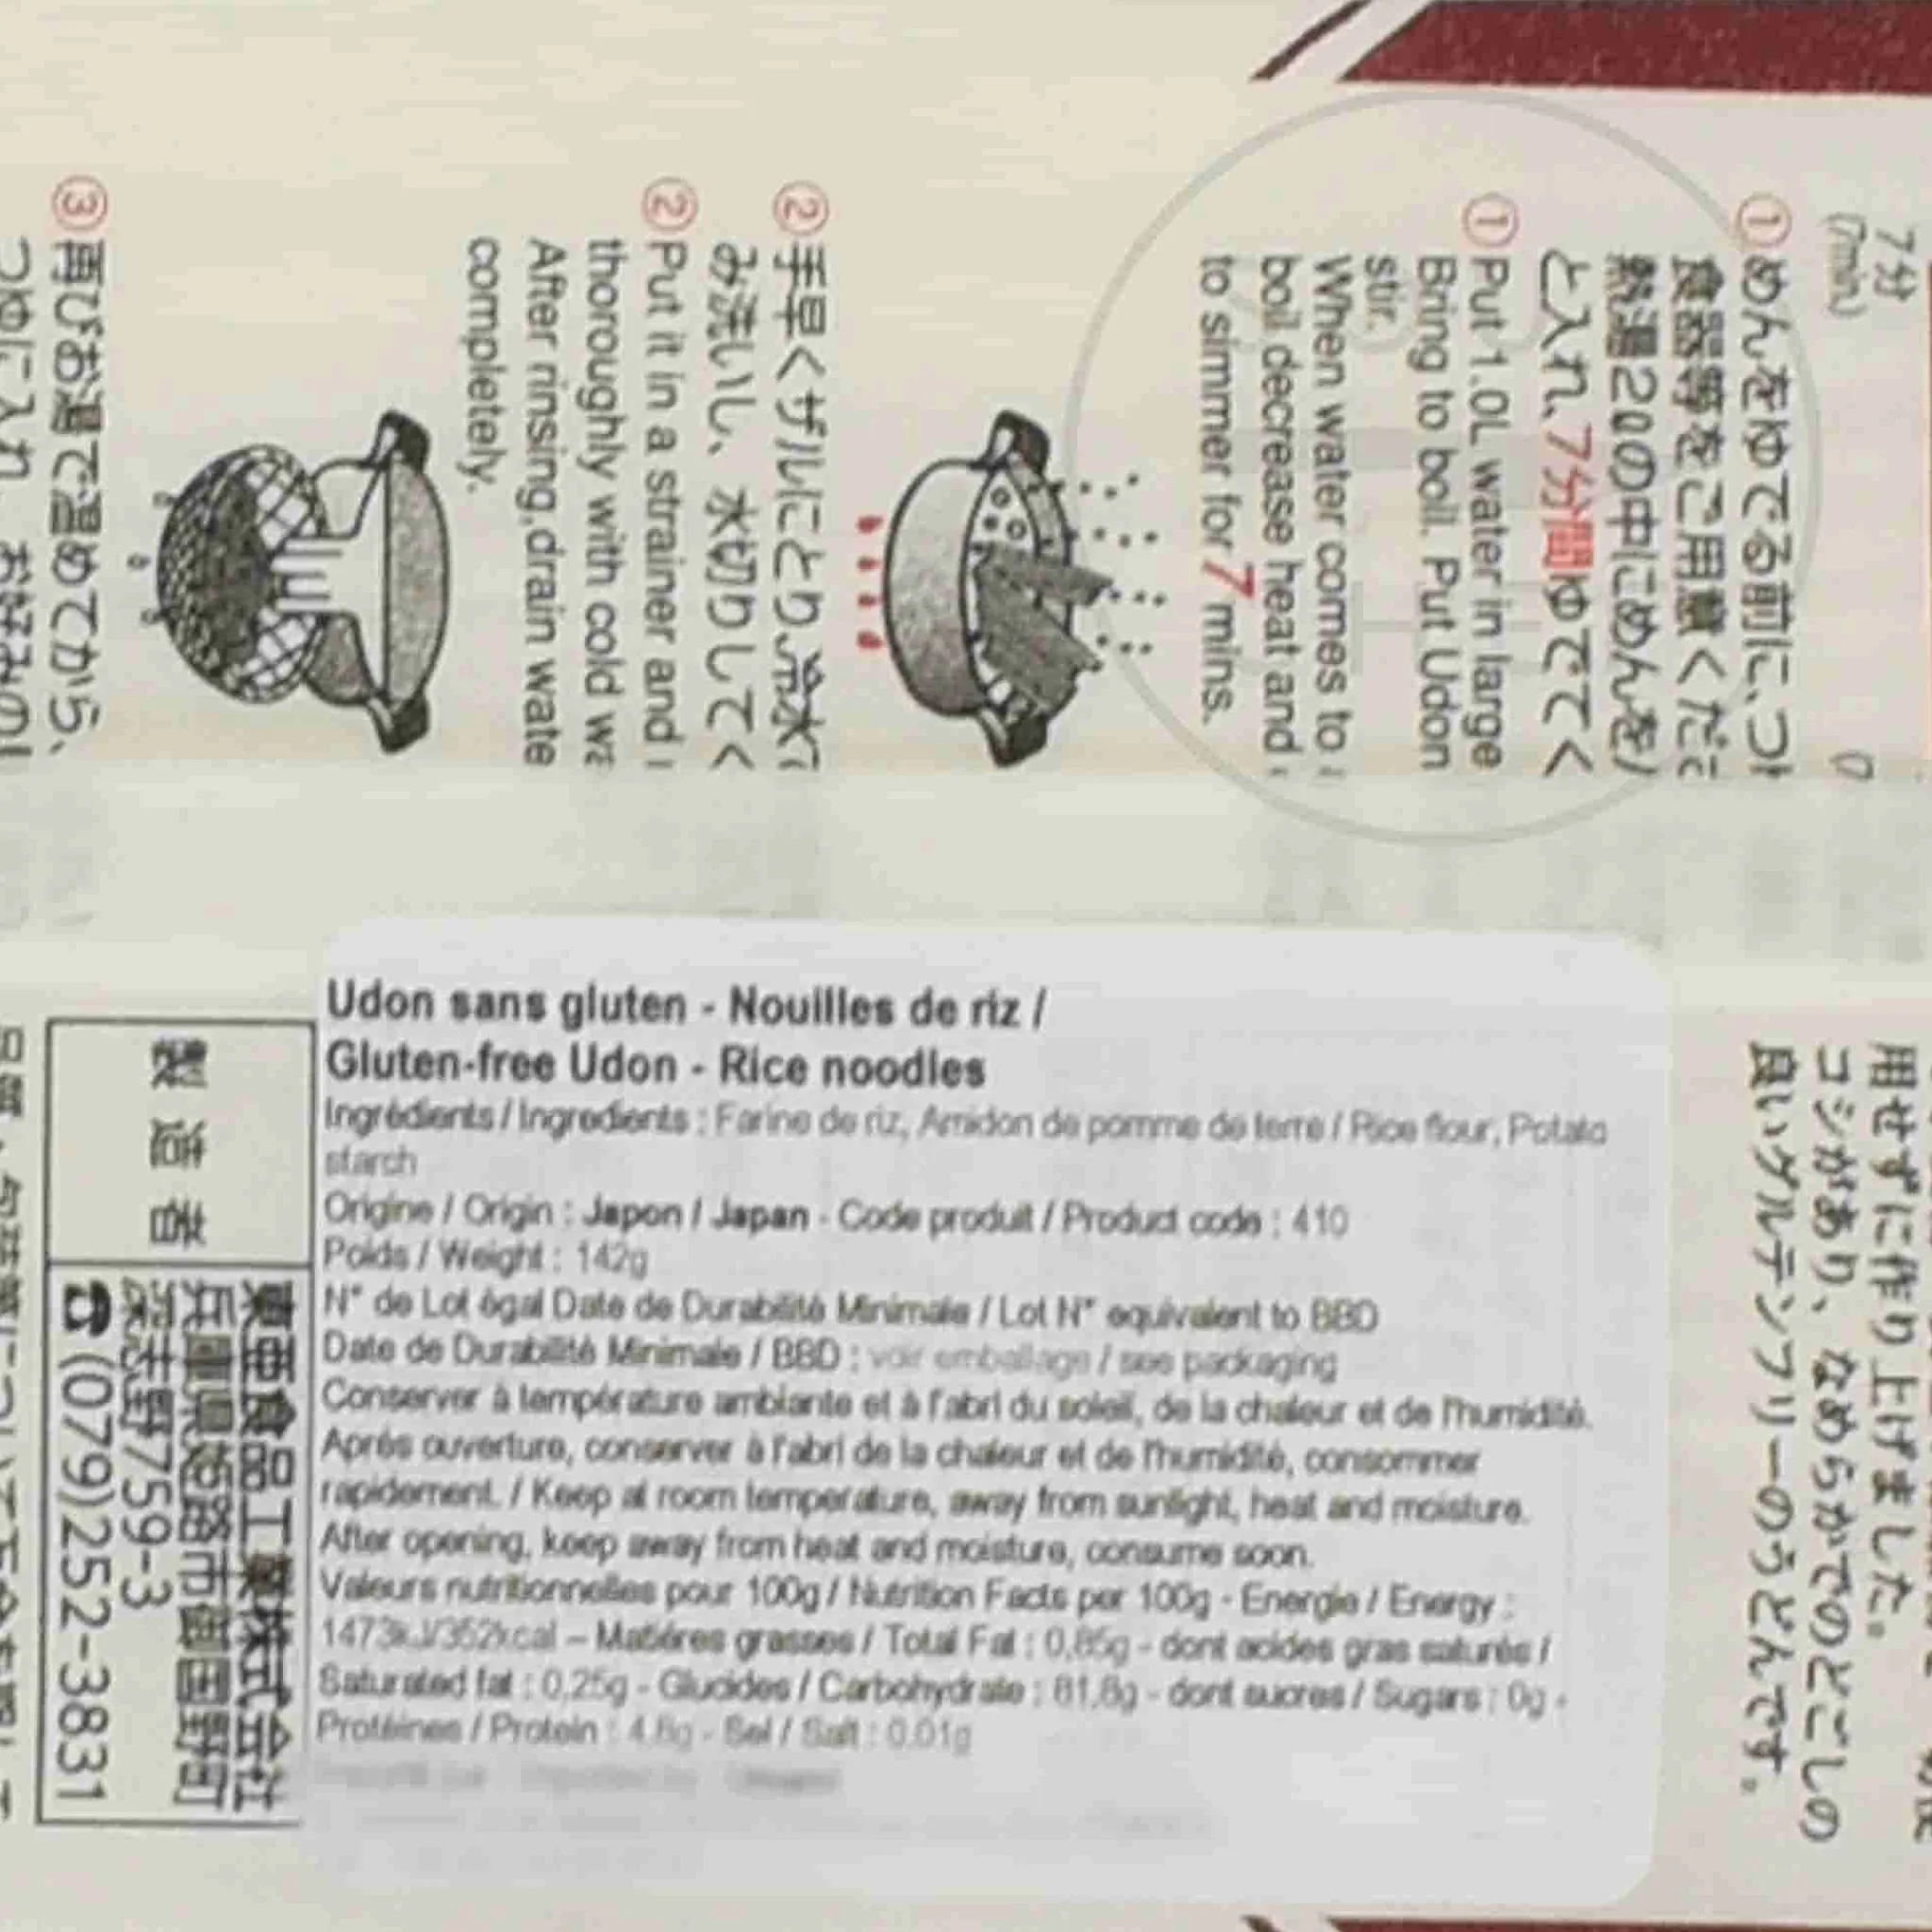 7分
(7min)
①めんをゆでる前に、つけ
食器等をご用意くださ
熱湯2ℓの中にめんを
と入れ、7分間ゆでてく
①Put 1.0L water in large
Bring to boil. Put Udon
stir.
When water comes to
boil decrease heat and
to simmer for 7 mins.
②手早くザルにとり、冷水で
み洗いし、水切りしてく
②Put it in a strainer and
thoroughly with cold wa
After rinsing,drain wate
completely.
③再びお湯で温めてから、
つゆに入れ、お好みの
用せずに作り上げました。
コシがあり、なめらかでのどごしの
良いグルテンフリーのうどんです。
Udon sans gluten - Nouilles de riz /
Gluten-free Udon - Rice noodles
Ingrédients / Ingredients : Farine de riz, Amidon de pomme de terre / Rice flour, Potato
starch
Origine / Origin : Japon / Japan - Code produit / Product code : 410
Poids / Weight : 142g
N° de Lot égal Date de Durabilité Minimale / Lot N° equivalent to BBD
Date de Durabilité Minimale / BBD : voir emballage / see packaging
Conserver à température ambiante et à l'abri du soleil, de la chaleur et de l'humidité.
Après ouverture, conserver à l'abri de la chaleur et de l'humidité, consommer
rapidement. / Keep at room temperature, away from sunlight, heat and moisture.
After opening, keep away from heat and moisture, consume soon.
Valeurs nutritionnelles pour 100g / Nutrition Facts per 100g - Energie / Energy :
1473kJ/352kcal – Matières grasses / Total Fat : 0,85g - dont acides gras saturés /
Saturated fat : 0,25g - Glucides / Carbohydrate : 81,8g - dont sucres / Sugars : 0g -
Protéines / Protein : 4,8g - Sel / Salt : 0,01g
製造者
東亜食品工業株式会社
兵庫県姫路市御国野町
深志野759-3
☎(079)252-3831